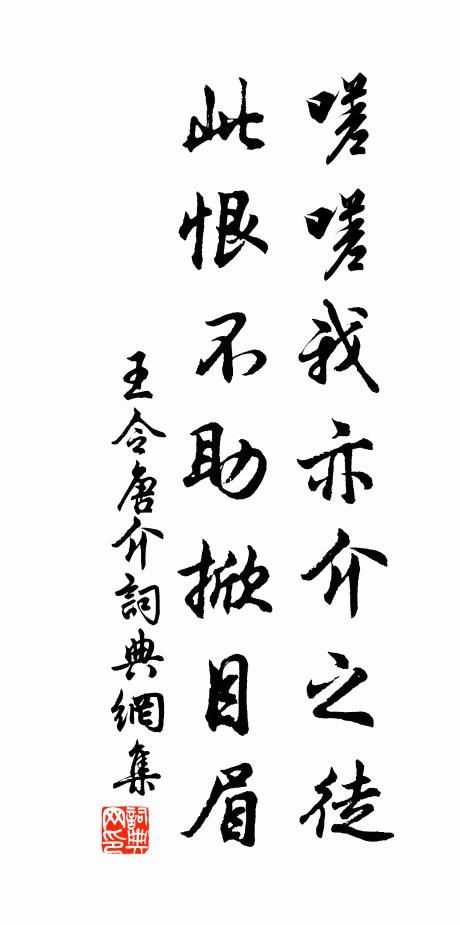 嗟嗟我亦介之徒
此恨不助掀目眉
王令唐介詞典網集
詞典
网印